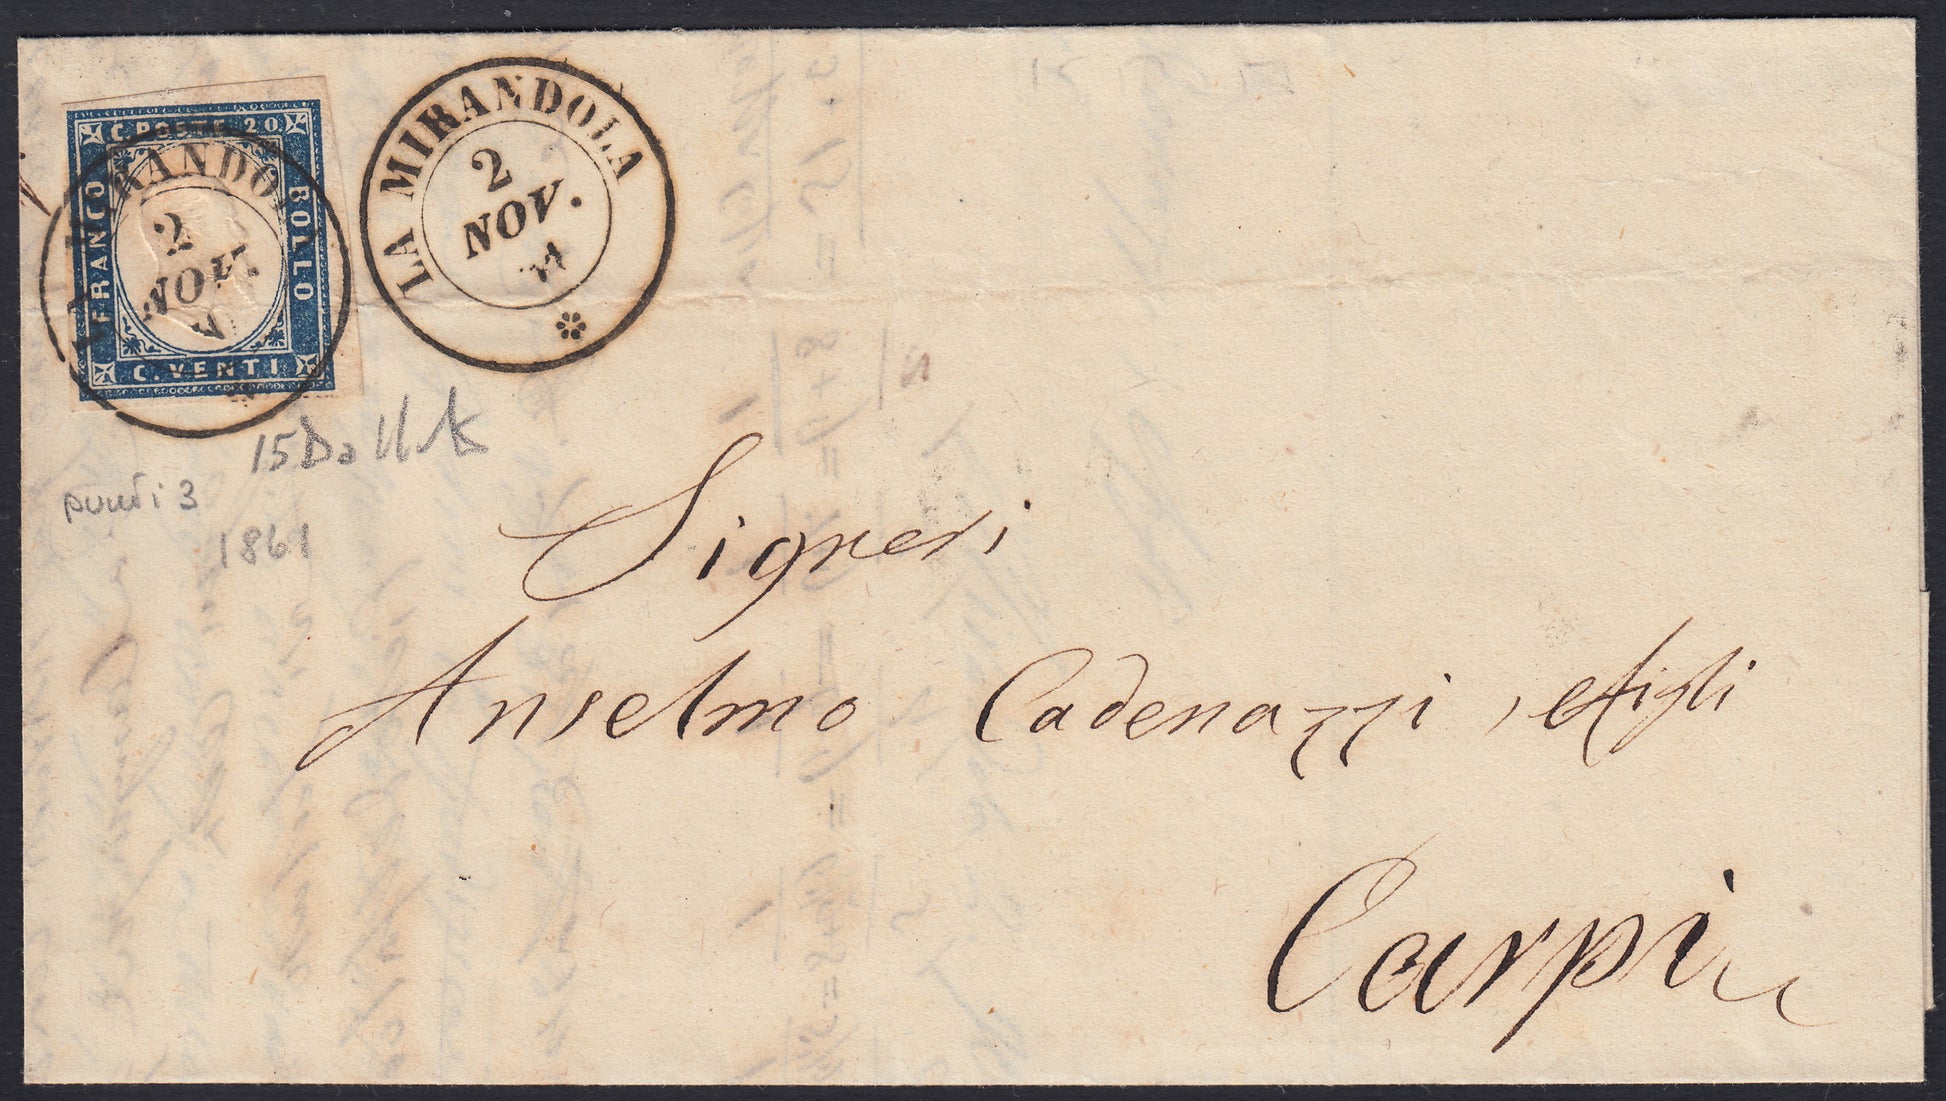 C. POSTE 20
FRANCO
BOLLO
C. VENTI
RANDO
2
NOV.
LA MIRANDOLA
2
NOV.
15Da
punti 3
1861
Signori
Anselmo Cadenazzi, e figli
Carpi